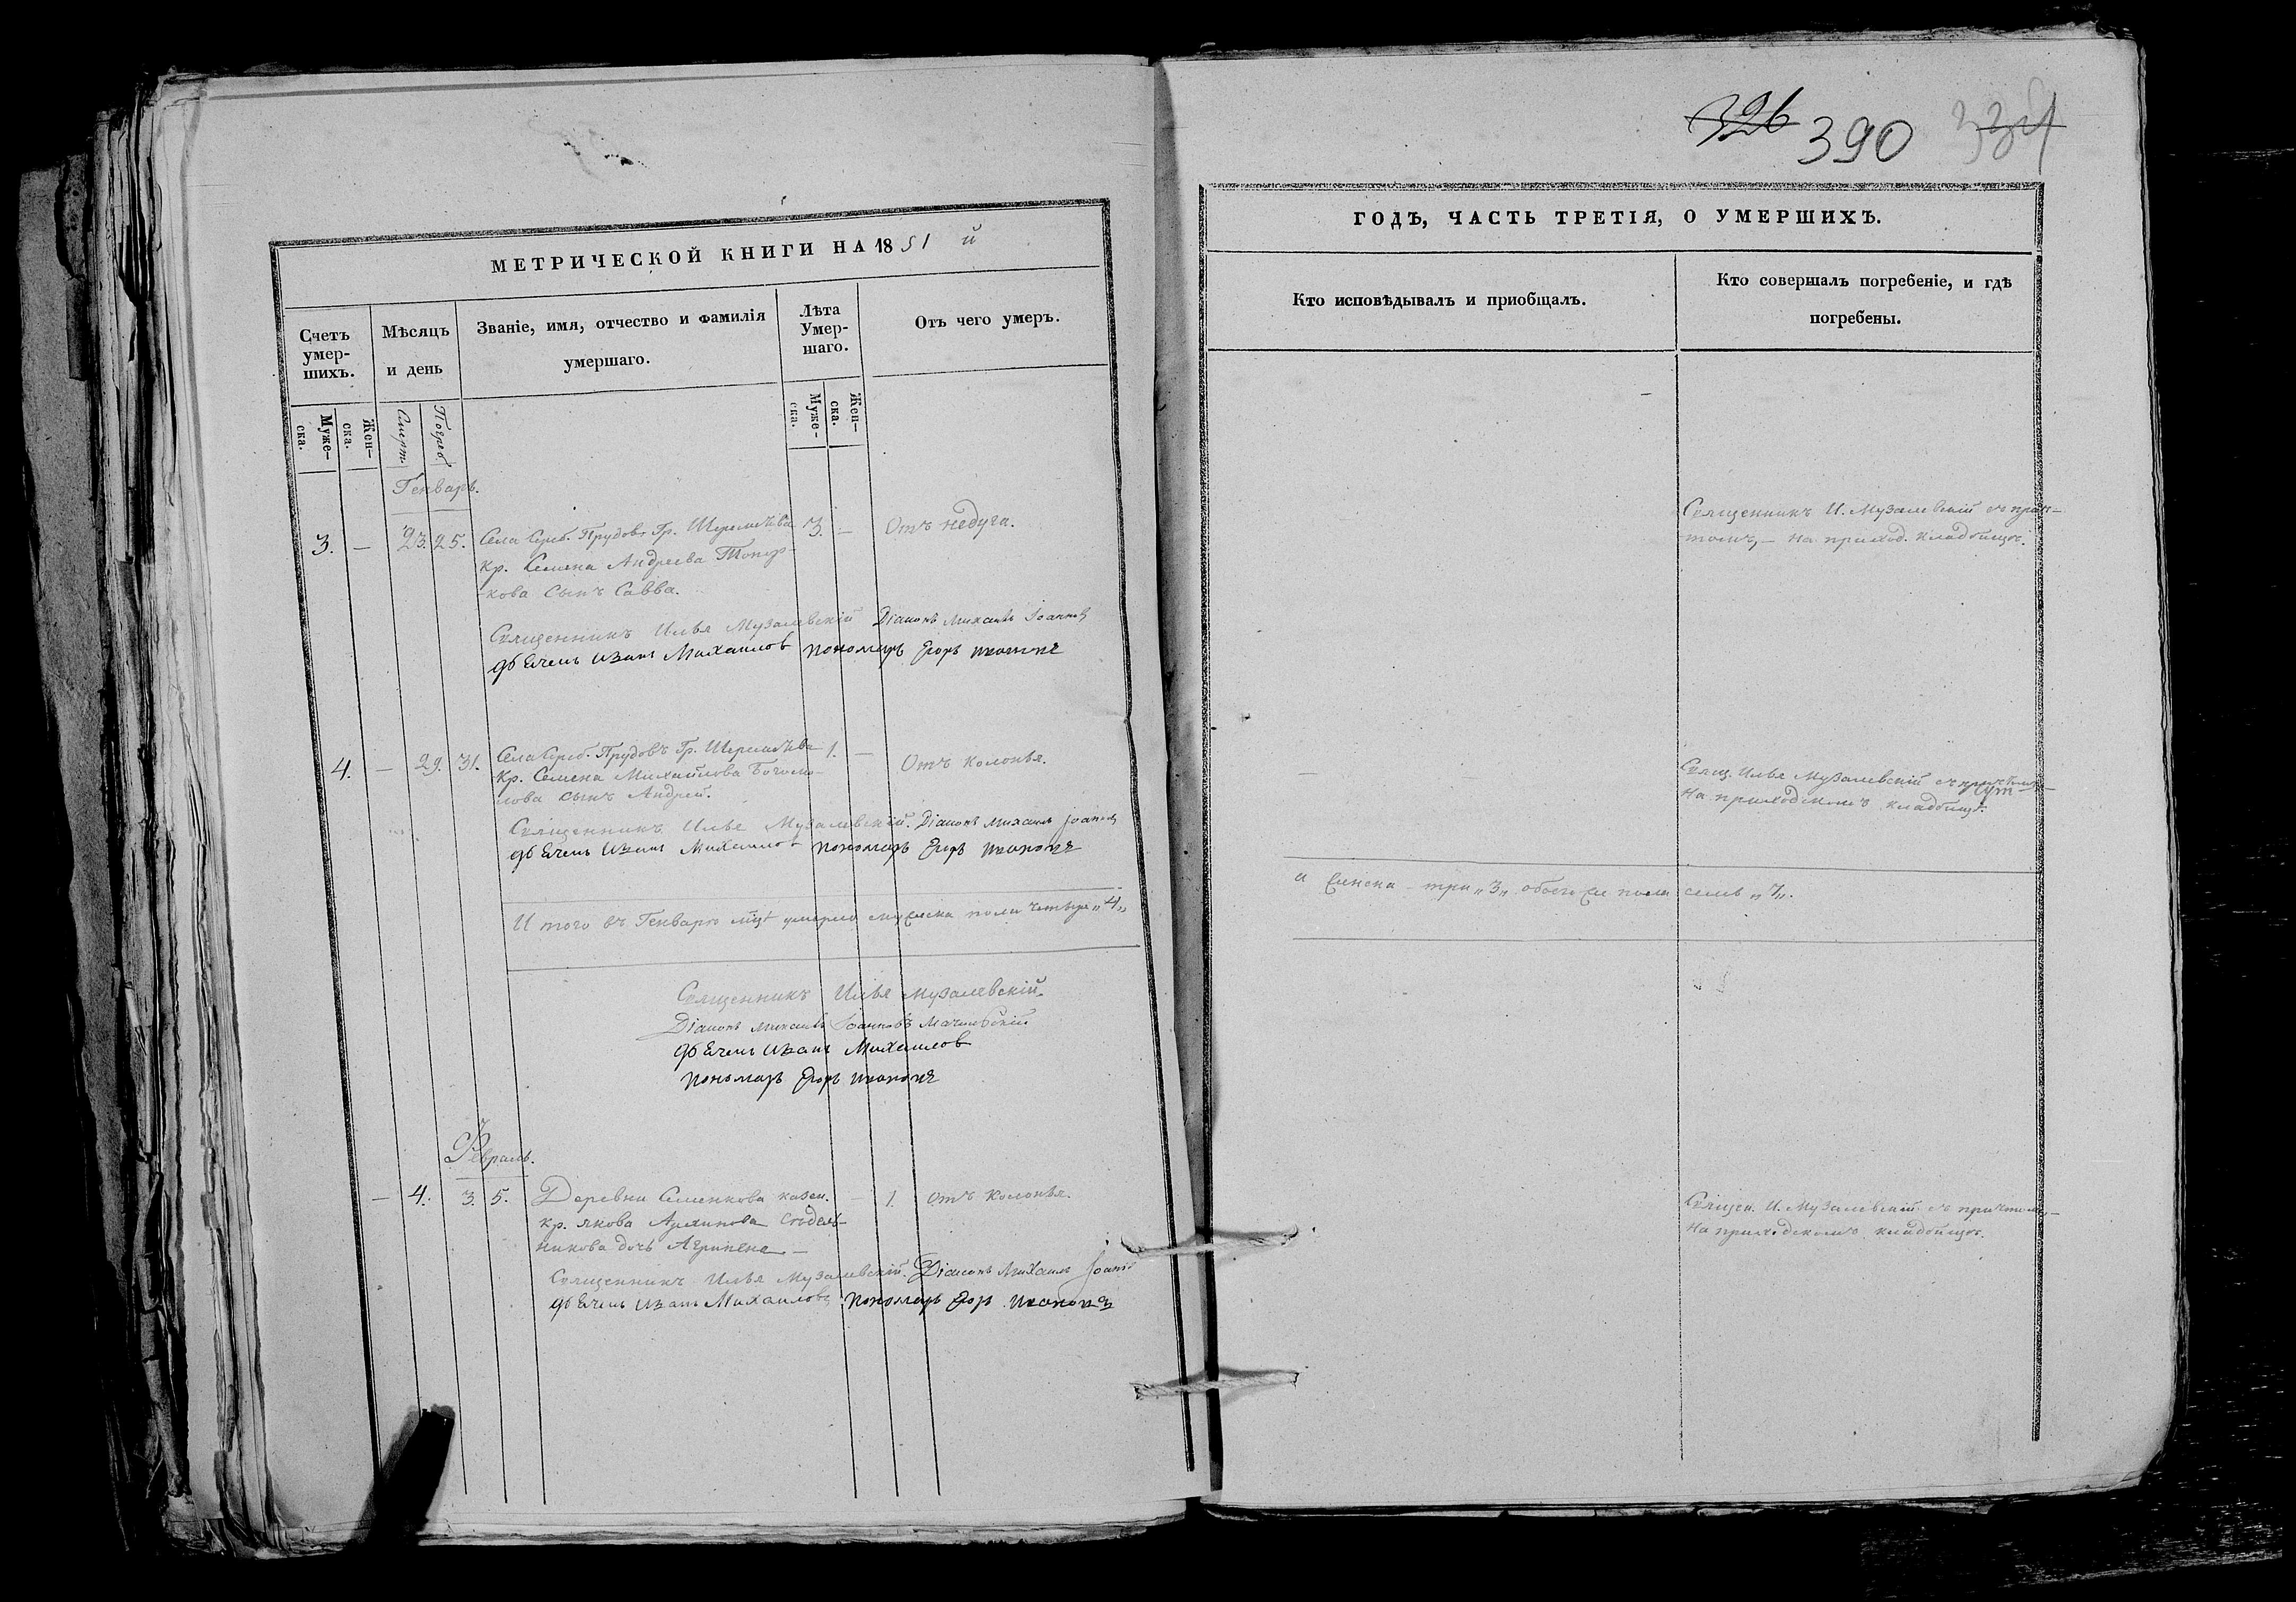 МЕТРИЧЕСКОЙ КНИГИ НА 1851 й
Счетъ умер-шихъ.
Мѣсяцъ и день
Званіе, имя, отчество и фамилія умершаго.
Лѣта Умер-шаго.
Отъ чего умеръ.
Муже-ска.
Жен-ска.
Смерт.
Погреб.
Муже-ска.
Жен-ска.
Генварь.
3. — 23. 25. Села Сереб. Прудовъ Гр. Шереметева 3. — Отъ недуга.
кр. Семена Андреева Топор-
кова сынъ Савва.
Священникъ Илья Музалевскій Діаконъ Михаилъ Іоанновъ
дьячекъ Иванъ Михаиловъ пономарь Егоръ
4. — 29. 31. Села Сереб. Прудовъ Гр. Шереметева 1. — Отъ колотья.
Кр. Семена Михайлова Богомо-
лова сынъ Андрей.
Священникъ Илья Музалевскій. Діаконъ Михаилъ Іоанновъ
дьячекъ Иванъ Михаиловъ пономарь Егоръ
И того въ Генварѣ мцѣ умерло мужеска пола четыре „4„
Священникъ Илья Музалевскій.
Діаконъ Михаилъ Іоанновъ
дьячекъ Иванъ Михаиловъ
пономарь Егоръ
Февраль.
— 4. 3. 5. Деревни Семенкова казен. — 1. отъ колотья.
кр. Якова Архипова Сѣдель-
никова дочь Агрипена —
Священникъ Илья Музалевскій. Діаконъ Михаилъ
дьячекъ Иванъ Михаиловъ пономарь Егоръ
326 390
ГОДЪ, ЧАСТЬ ТРЕТІЯ, О УМЕРШИХЪ.
Кто исповѣдывалъ и пріобщалъ.
Кто совершалъ погребеніе, и гдѣ
погребены.
Священникъ И. Музалевскій съ прич-
томъ, — на приход. кладбищѣ.
Свящ. Илья Музалевскій съ причтомъ —
на приходскомъ кладбищѣ.
а женска — три „3„ обоего же пола семь „7„.
Священ. И. Музалевскій съ причтомъ —
на приходскомъ кладбищѣ.